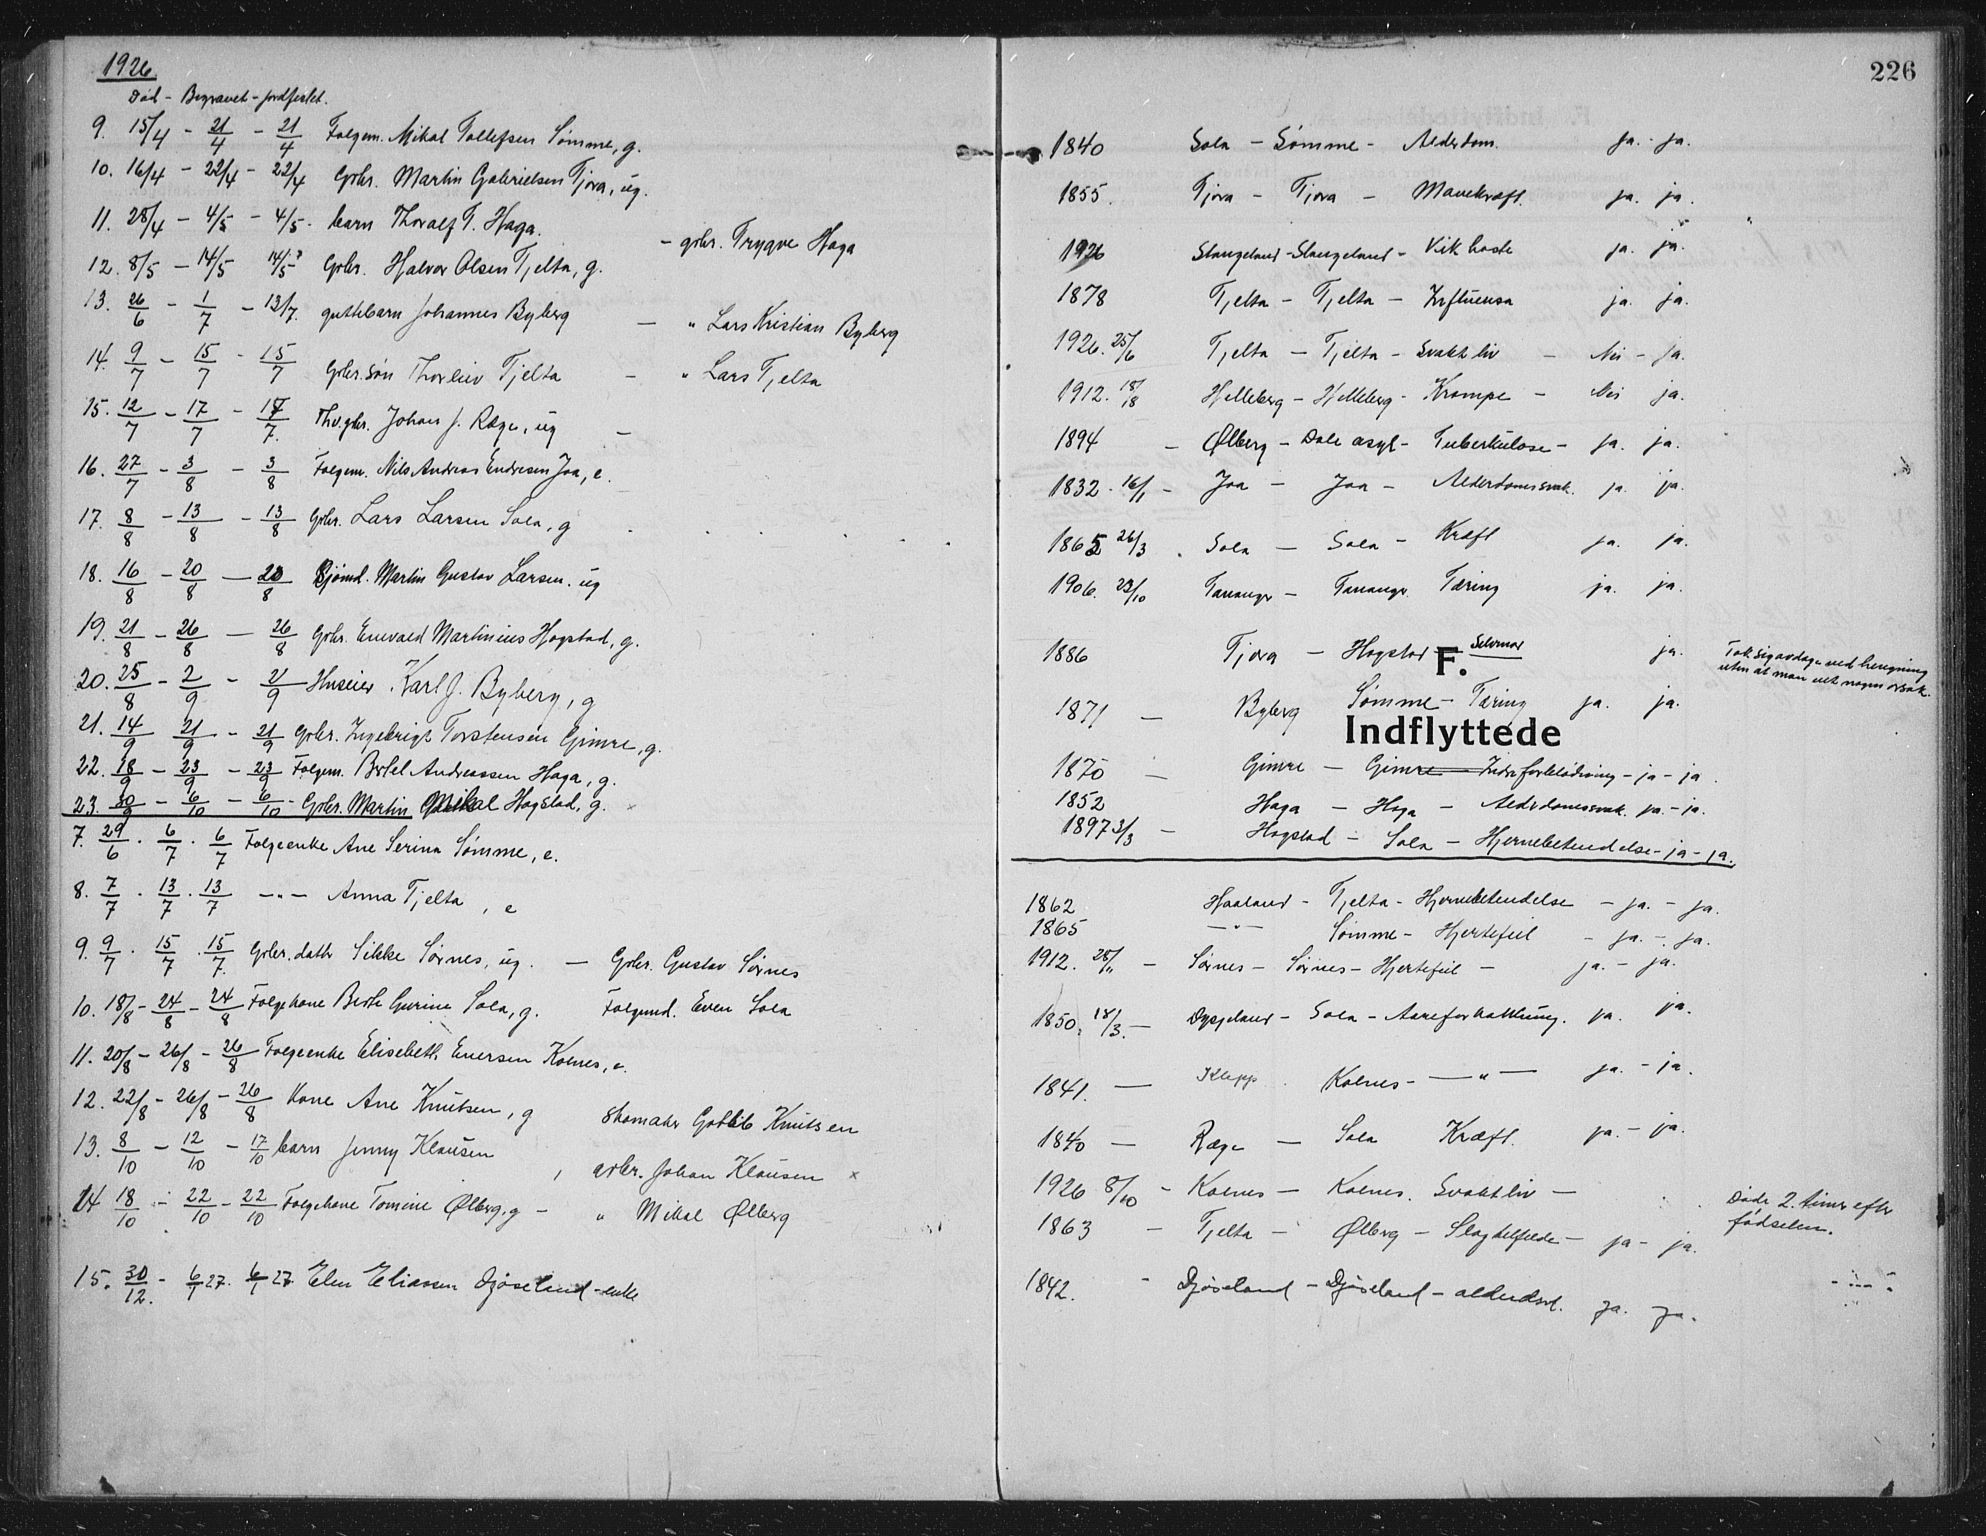 1926
Død - Begravet - jordfestet.
9. 15/4 - 21/4 - 21/4 Folgem. Mikal Tollefsen Sømme, g.
10. 16/4 - 22/4 - 22/4 Gbr. Martin Gabrielsen Tjora, ug.
11. 28/4 - 4/5 - 4/5 - barn Thoralf T. Haga. - gbr. Trygve Haga
12. 8/5 - 14/5 14/5 Gbr. Halvor Olsen Tjelta, g.
13. 26/6 - 1/7 - 13/7. guttebarn Johannes Byberg - " Lars Kristian Byberg
14. 9/7 - 15/7 - 15/7 Gbr. søn Thorleiv Tjelta - " Lars Tjelta
15. 12/7 - 17/7 - 17/7. Fhv. gbr. Johan J. Ræge, ug -
16. 27/7 - 3/8 - 3/8 Folgem. Nils Andreas Endresen Joa, e.
17. 8/8 - 13/8 - 13/8 Gbr. Lars Larsen Sola, g
18. 16/8 - 20/8 - 20/8 Sjømd. Martin Gustav Larsen. ug
19. 21/8 - 26/8 - 26/8 Gbr. Enevald Martinius Hogstad, g.
20. 25/8 - 2/9 - 2/9 Huseier, Karl J. Byberg, g
21. 14/9 21/9 - 21/9 Gbr. Ingebrigt Torstensen Gimre, g.
22. 18/9 - 23/9 - 23/9 Folgem. Bertel Andreassen Haga, g.
23. 30/9 - 6/10 - 6/10 - Gbr. Martin Mikal Hogstad, g.
7. 29/6 . 6/7 . 6/7 Folgeenke Ane Serina Sømme, e.
8. 7/7 . 13/7 . 13/7 - " - Anna Tjelta, e
9. 9/7 . 15/7 . 15/7. Gbr. datter Sikke Sørnes, ug. - Gbr. Gustav Sørnes
10. 18/8 - 24/8 - 24/8 Folgekone Berte Gurine Sola, g. Folgemd. Even Sola
11. 20/8 - 26/8 - 26/8 Folgeenke Elisabeth Enersen Kolnes, e.
12. 22/8 - 26/8 - 26/8 Kone Ane Knutsen, g skomaker Gotlib Knutsen
13. 8/10 - 12/10 - 17/10 barn Jenny Klausen, arbr. Johan Klausen x
14 18/10 - 22/10 - 22/10 Folgekone Tomine Ølberg, g - " Mikal Ølberg
15. 30/12. - 6/1 27. 6/1 27. Elen Eliassen Djøseland - enke
226
1840 Sola - Sømme - Alderdom. ja. - ja.
1855. Tjora - Tjora - Mavekræft. ja. ja.
1926 Stangeland - Stangeland - Kikhoste ja. ja.
1878 Tjelta - Tjelta - Influensa ja. ja.
1926. 25/6 Tjelta - Tjelta - Svakt liv - Nei - ja.
1912. 18/18 Helleberg - Helleberg - Krampe - Nei ja.
1894 - Ølberg - Dale asyl - Tuberkulose - ja. ja.
1832 - 16/1 - Joa - Joa - Alderdomssvak. ja. ja.
1865 26/3 . Sola - Sola - Kræft ja. ja.
1906. 23/10 Tananger - Tananger Tæring ja. ja.
1886 Tjora - Hogstad - Selvmord ja. Tok sig avdage ved hengning
uten at man vet nogen orsak.
F.
1871 - Byberg Sømme - Tæring ja. ja.
Indflyttede
1870 - Gimre - Gimre - Indre forblødning - ja - ja.
1852 Haga - Haga - Alderdomssvak. ja. - ja.
1897 3/3 - Hogstad - Sola - Hjernebetendelse - ja - ja.
1862 Haaland - Tjelta - Hjernebetendelse - ja. - ja.
1865 - " - Sømme - Hjertefeil - ja. - ja.
1912. 28/11 - Sørnes - Sørnes - Hjertefeil - ja. - ja.
1850. 18/3. - Dysjeland - Sola - Aareforkalkning. ja. ja.
1841. - Klepp . Kolnes - - " - ja. - ja.
1840 - Ræge - Sola Kræft. ja. - ja.
1926 8/10 - Kolnes - Kolnes. Svakt liv - Døde 2. timer efter
fødselen.
1863 - Tjelta - Ølberg - Slagtilfelde - ja - ja.
1842. - Djøseland - Djøseland - alderdsd. ja. ja.